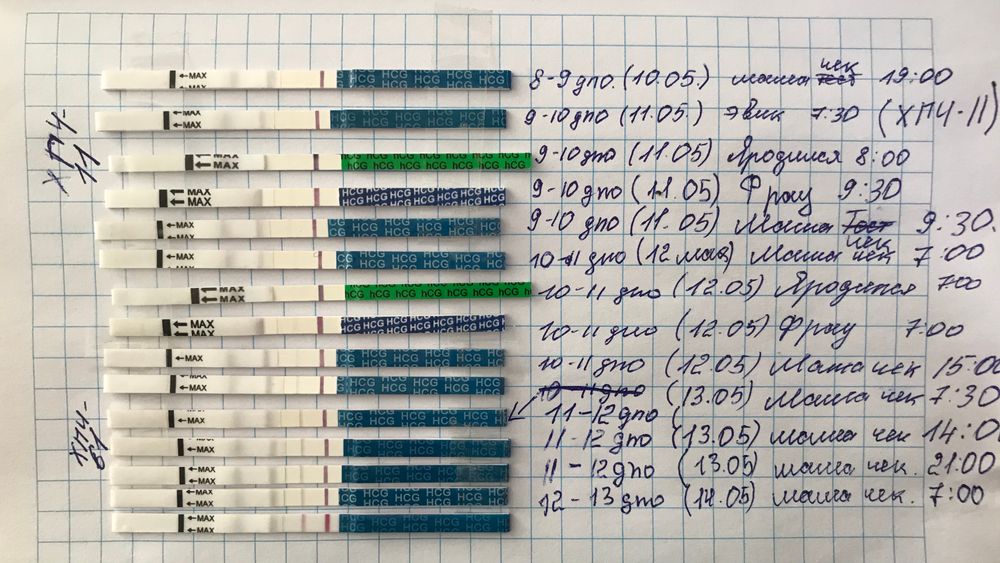 8-9 дпо. (10.05.) маша тест чек 19:00
9-10 дпо (11.05.) эвик 7:30 (ХГЧ-11)
9-10 дпо (11.05) Яродился 8:00
9-10 дпо (11.05) Фрау 9:30
9-10 дпо (11.05) Маша Тест чек 9:30.
10-11 дпо (12 мая) Маша чек 7:00
10-11 дпо (12.05) Яродился 700
10-11 дпо (12.05) Фрау 7:00
10-11 дпо (12.05) Маша чек 15:00
10-11 дпо (13.05) Маша чек 7:30
11-12 дпо (
11-12 дпо (13.05) маша чек 14:0
11-12 дпо (13.05) маша чек. 21:00
12-13 дпо (14.05) маша чек. 7:00
ХГЧ-11
ХГЧ-61
←MAX HCG HCG HCG HCG
←MAX HCG HCG HCG HCG
←MAX hCG hCG hCG hCG
←MAX HCG HCG HCG HCG
←MAX HCG HCG HCG HCG
←MAX HCG HCG HCG HCG
←MAX hCG hCG hCG hCG
←MAX HCG HCG HCG HCG
←MAX HCG HCG HCG HCG
←MAX HCG HCG HCG HCG
←MAX HCG HCG HCG HCG
←MAX HCG HCG HCG HCG
←MAX HCG HCG HCG HCG
←MAX HCG HCG HCG HCG
←MAX HCG HCG HCG HCG